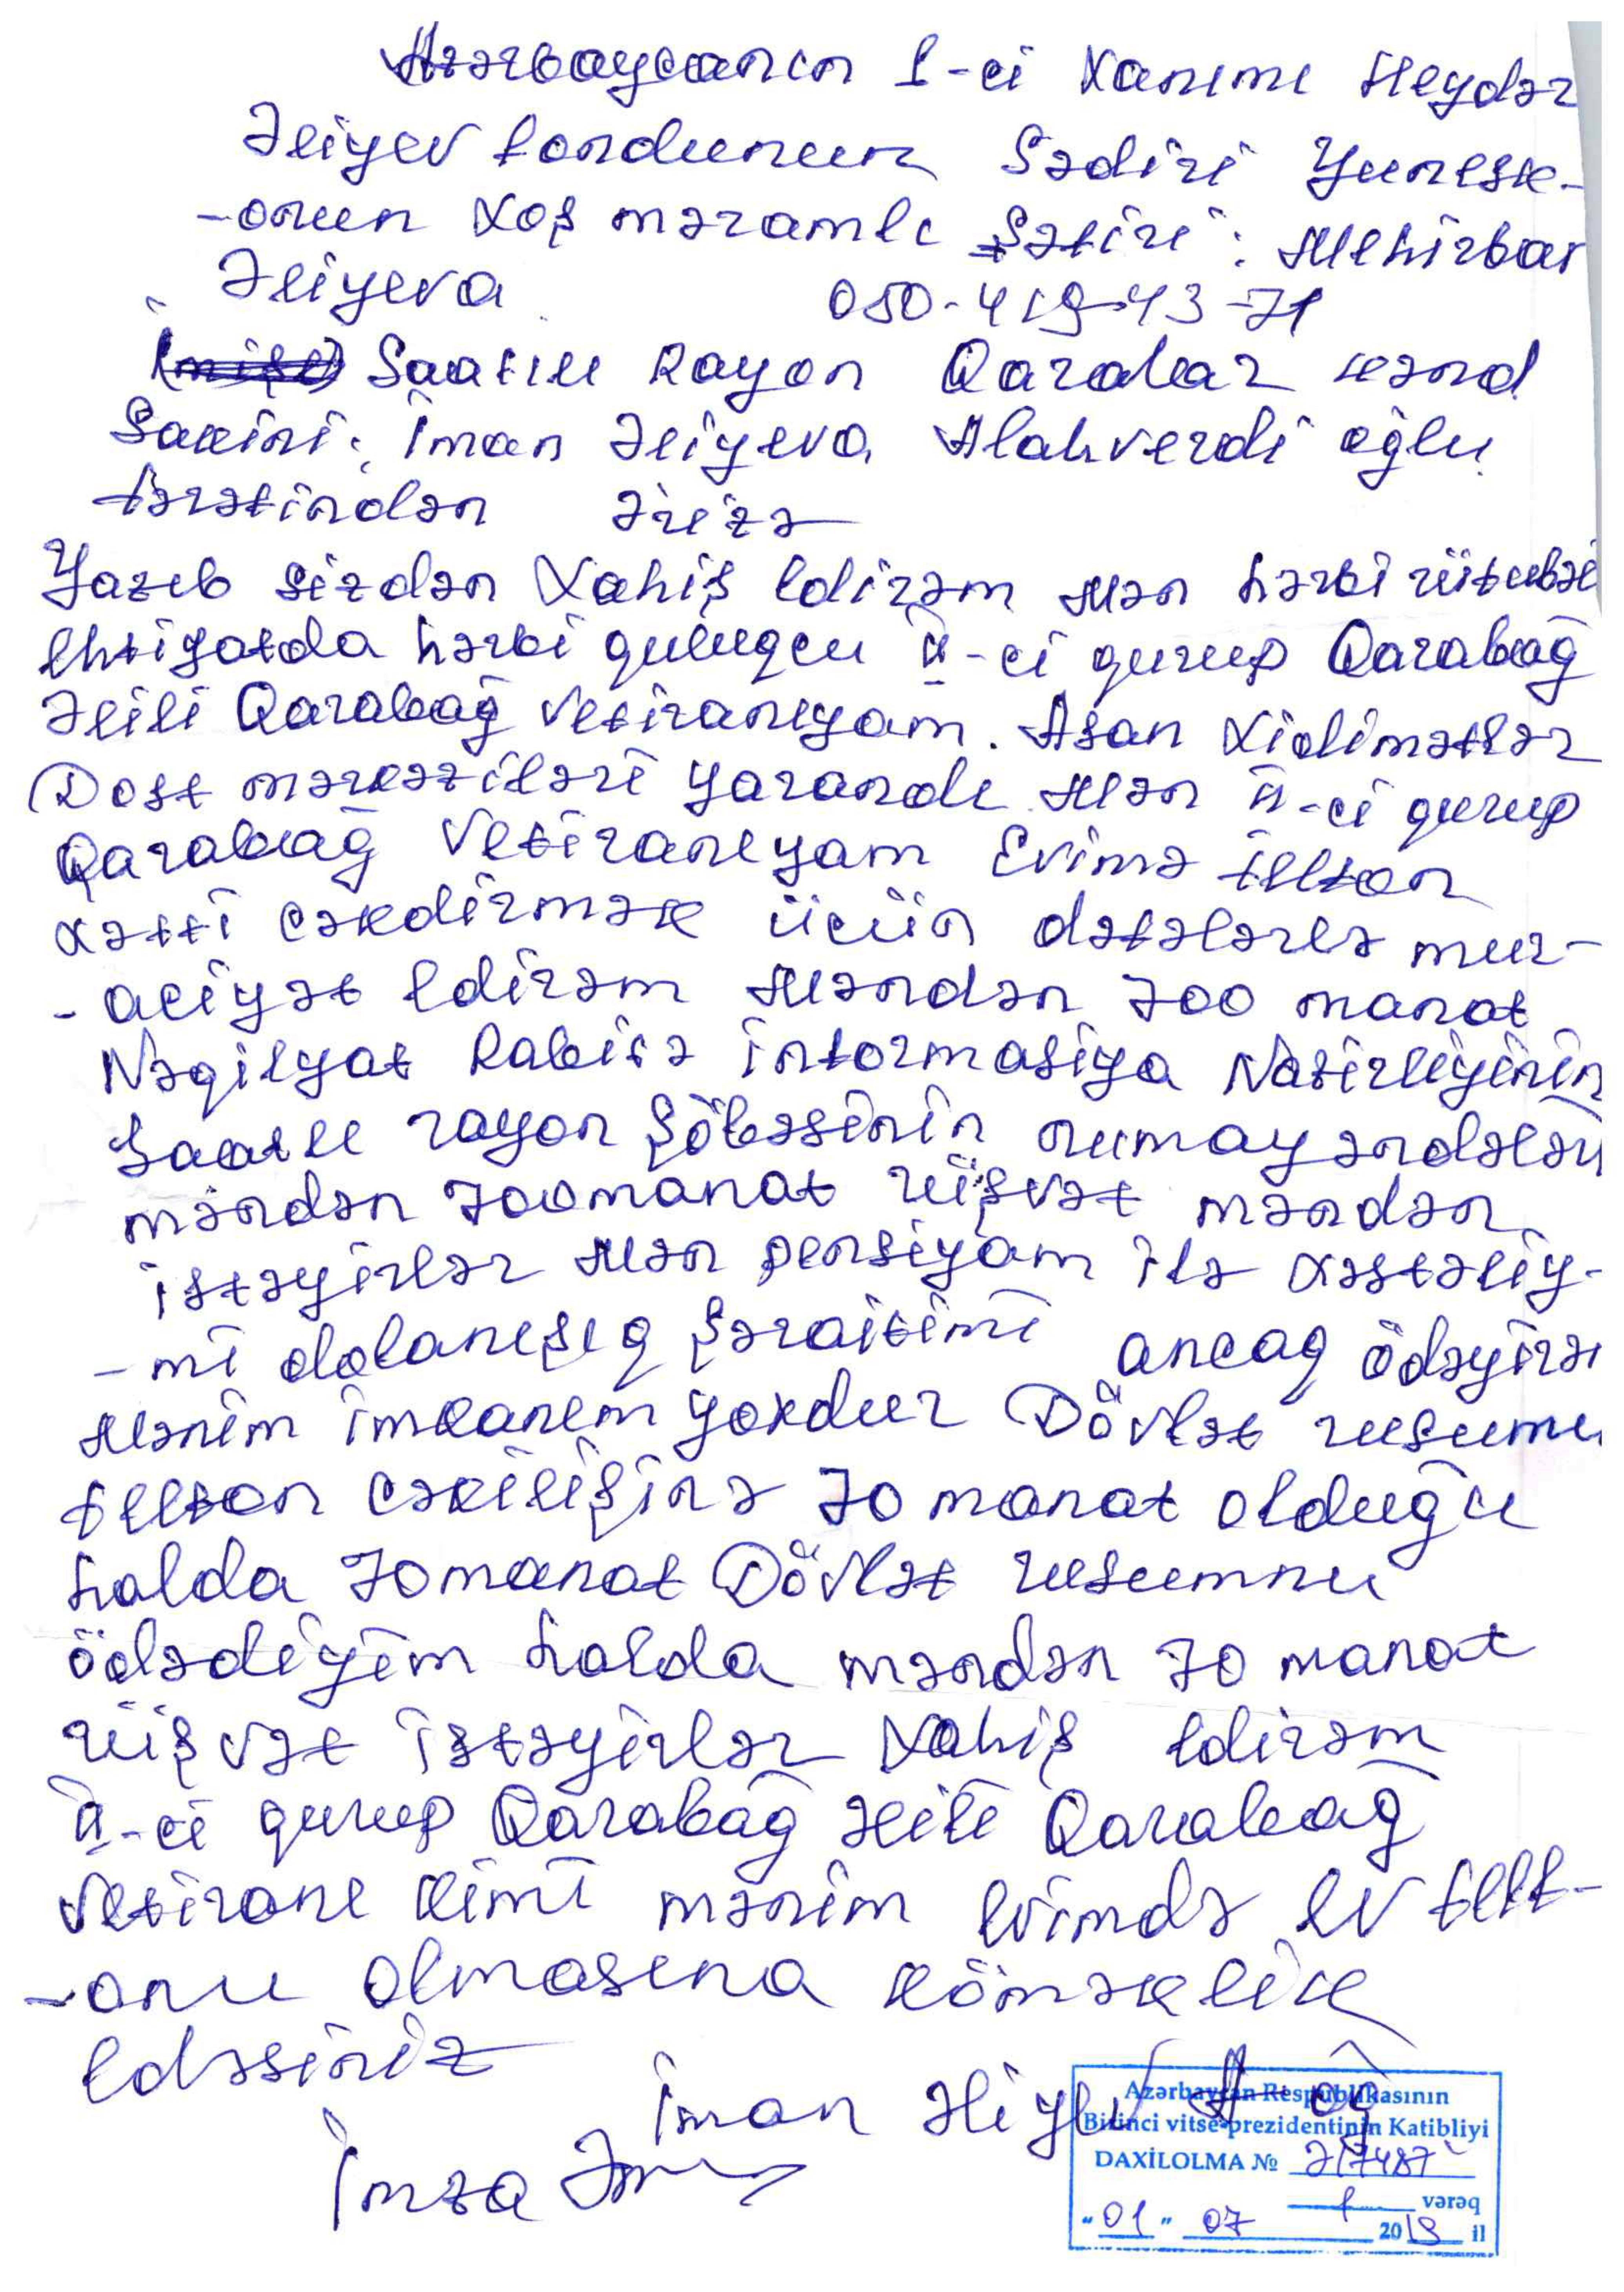 Azərbaycanın 1-ci Xanımı Heydər
Əliyev fondunun Sədiri Yunesk-
-onun Xoş məramlı Səfiri: Mehirban
Əliyeva 050-419-43-71
Saatlı Rayon Qaralar kənd
Sakini: İman Əliyeva Alahverdi oğlu
tərəfindən Ərizə
Yazıb sizdən Xahiş edirəm Mən hərbi rütubəli
ehtiyatda hərbi quluqçu II-ci qurup Qarabağ
Əlili Qarabağ Vetiranıyam. Asan Xidimətlər
Dost mərkəziləri yarandı Mən II-ci qurup
Qarabağ Vetiranıyam Evimə telfon
xətti cəkdirmək ücün dəfələrlə mur-
-aciyət edirəm Məndən 700 manat
Nəqilyat Rabitə informasiya Nazirliyinin
Saatlı rayon Şöbəsinin numayəndələri
məndən 700manat rüşvət məndən
istəyirlər Mən pensiyam ilə xəstəliy-
-mi dolanışıq Şəraitimi ancag ödəyirəm
Mənim imkanım yoxdur Dövlət rusumu
telfon cəkilişinə 70 manat olduğu
halda 70manat Dövlət rusumnu
ödədiyim halda məndən 70 manat
rüşvət istəyirlər Xahiş edirəm
II-ci qurup Qarabağ Əlili Qarabağ
Vetiranı kimi mənim evimdə ev telf-
-onu olmasına köməklik
edəsiniz
İman Əliyev A oğ
İmza
Azərbaycan Respublikasının
Birinci vitse-prezidentinin Katibliyi
DAXİLOLMA №
1 vərəq
"01" 07 2019 il